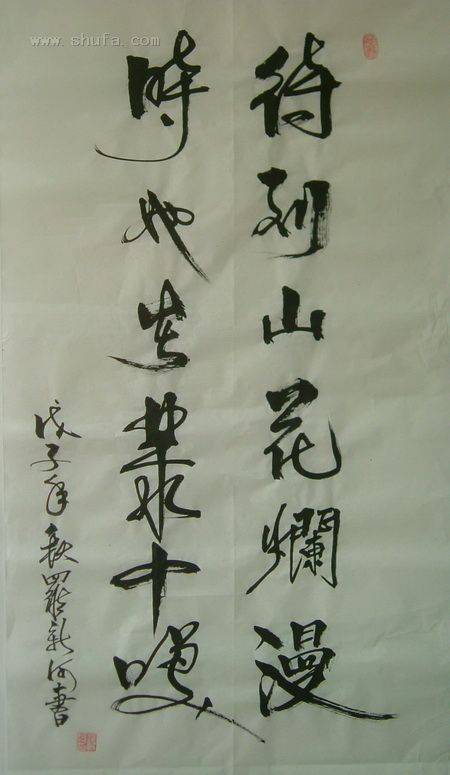 www.shufa.com
待到山花爛漫
時她在叢中咲
戊子年秋羅新河書